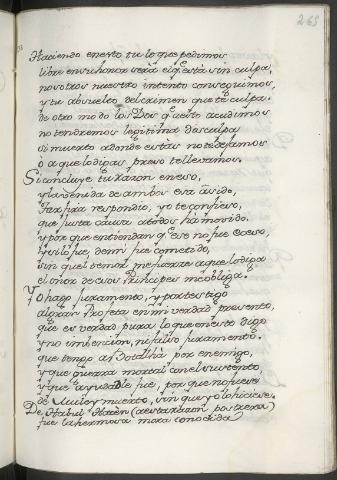 265
Haciendo en esto tu lo que pedimos
libre en su honor será el q. está sin culpa,
nosotros nuestro intento conseguimos,
y tu absuelto del crimen que te culpa.
de otro modo los Dos q. a esto acudimos
no tendremos legitima desculpa
si muerto adonde estás no te dejamos
o a que lo digas preso te llevamos.
Si concluye tu razon en eso,
y la venida de ambos era
Jarifa respondio, yo te confieso,
que justa causa a todos ha movido.
y por que entiendan q. ese no fue eceso,
y si lo fue, de mi fue cometido,
sin que el temor me fuerze a que lo diga
el onor de esos Principes me obliga.
Yo hago juramento, y por testigo
al gran Profeta en mi verdad presento,
que es verdad pura lo que en esto digo
y no imbencion, ni falso juramento.
que tengo a Botalhá por enemigo,
y que guerra mortal con el sustento,
y que ayudable fue, por que no fuese
de Muley muerto, sin que yo lo hiciese.
De Habul Hacen (a esta razon postrera)
fue la hermosa mora conocida